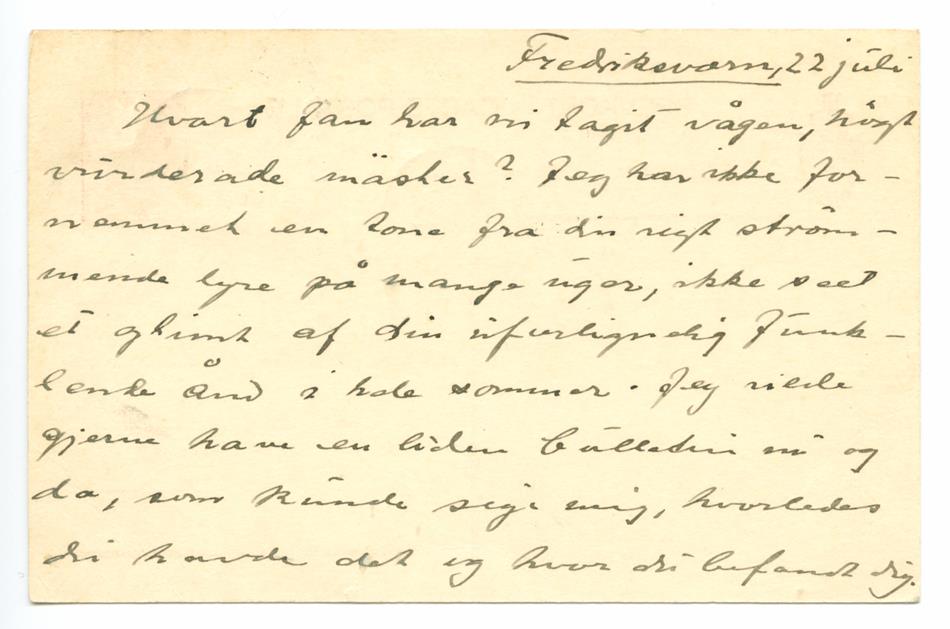 Fredriksværn, 22 juli
Hvart fan har ni tagit vågen, högt
värderade mäster? Jeg har ikke for-
nemmet en tone fra din rigt ström-
mende lyre på mange uger, ikke seet
et glimt af din uforlignelig funk-
lende ånd i hele sommer. Jeg vilde
gjerne have en liden bulletin nu og
da, som kunde sige mig, hvorledes
du havde det og hvor du befandt dig.